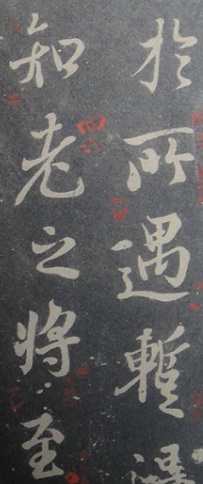 於所遇蹔得
知老之將至